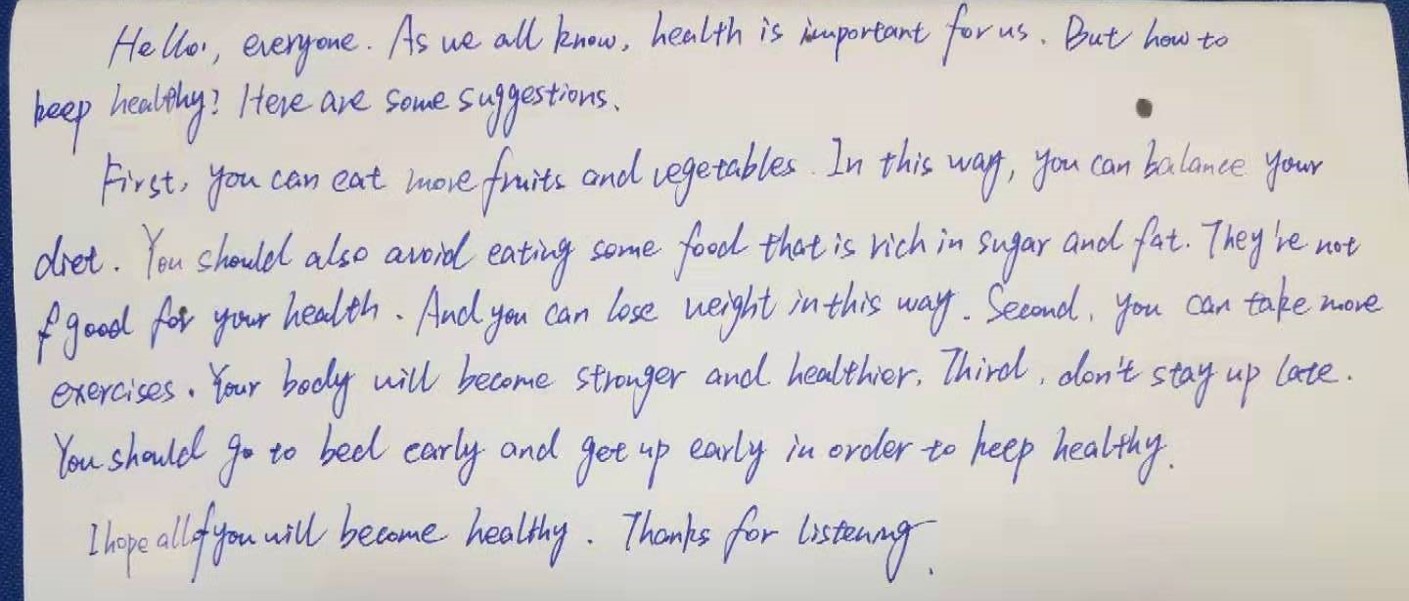 Hello, everyone. As we all know, health is important for us. But how to
keep healthy? Here are some suggestions.
First, you can eat more fruits and vegetables. In this way, you can balance your
diet. You should also avoid eating some food that is rich in sugar and fat. They're not
f good for your health. And you can lose weight in this way. Second, you can take more
exercises. Your body will become stronger and healthier. Third, don't stay up late.
You should go to bed early and get up early in order to keep healthy.
I hope all of you will become healthy. Thanks for listening.